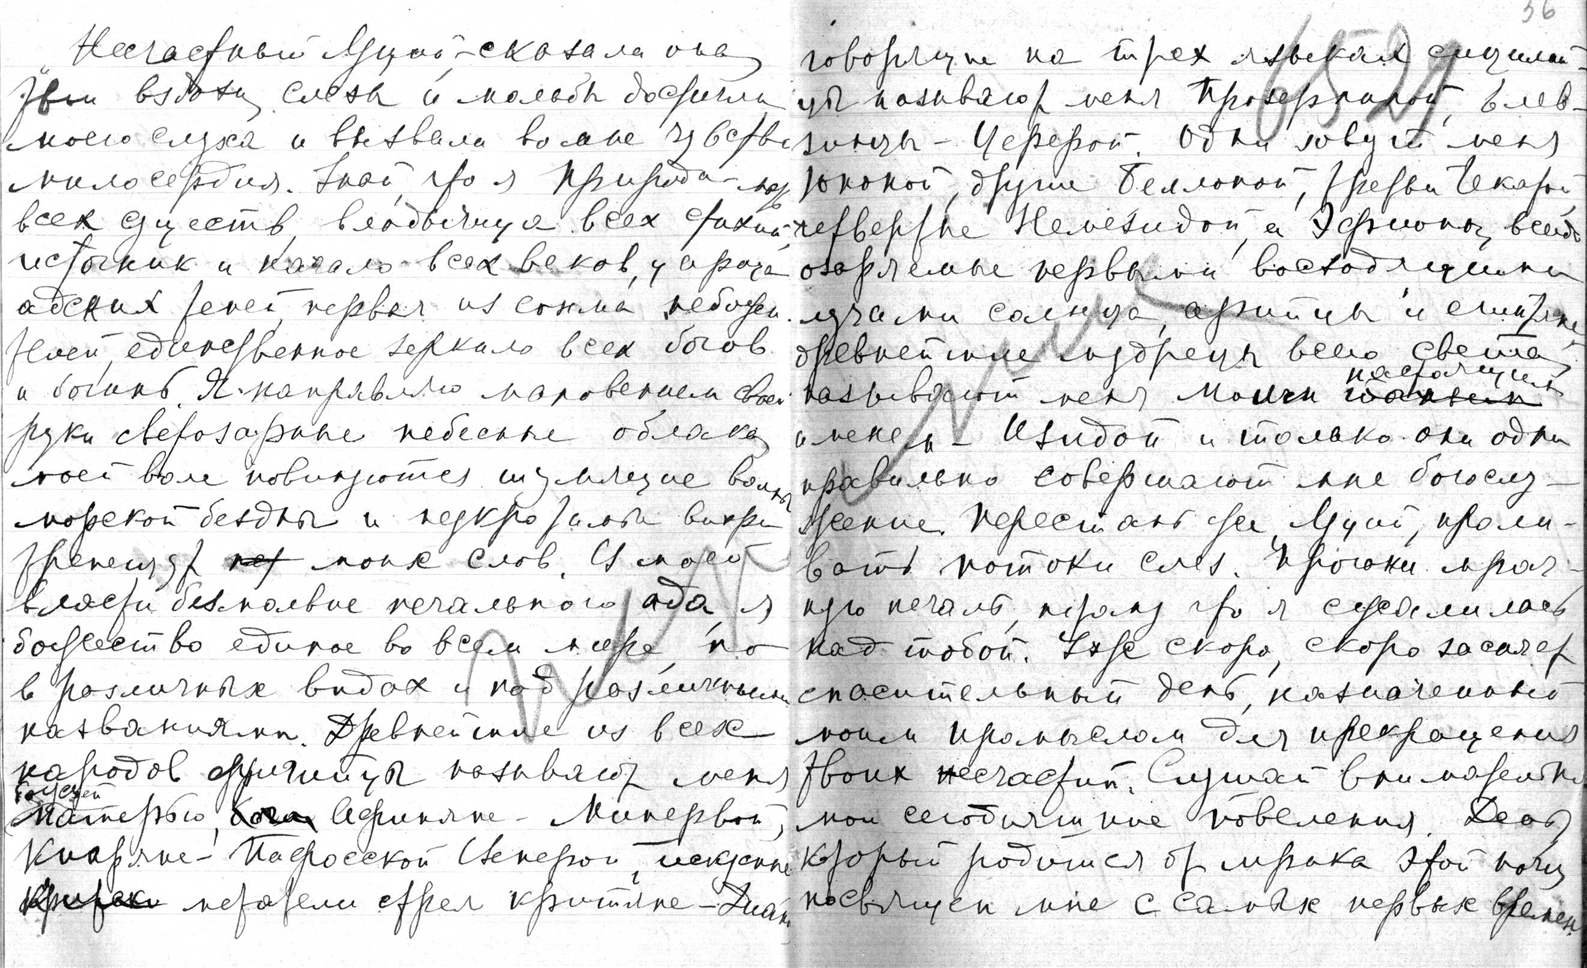 Несчастный Луций, – сказала она,
твои вздохи, слезы и мольбы достигли
моего слуха и вызвали во мне чувство
милосердия. Знай, что я Природа – мать
всех существ, владычица всех стихий,
источник и начало всех веков, царица
адских теней, первая из сонма небожи-
телей, единственное зеркало всех богов
и богинь. Я направляю мановением своей
руки светозарные небесные облака,
моей воле повинуются шумящие волны
морской бездны и неукротимые вихри
трепещут моих слов. В моей
власти безмолвие печального ада, я
божество единое во всем мире, но
в различных видах и под различными
названиями. Древнейшие из всех
народов фригийцы называют меня
Матерью богов, Афиняне – Минервой,
Кипряне – Пафосской Венерой, искусные
метатели стрел критяне – Диан
36
6529
говорящие на трех языках сицилий-
цы называют меня Прозерпиной, Элев-
зинцы – Церерой. Одни зовут меня
Юноной, другие Беллоной, третьи Гекатой,
четвертые Немезидой, а Эфиопы, всегда
озаряемые первыми восходящими
лучами солнца, арийцы и египтяне,
древнейшие мудрецы всего света,
называют меня моим настоящим
именем – Изидой и только они одни
правильно совершают мне богослу-
жение. Перестань же, Луций, проли-
вать потоки слез. Прогони мрач-
ную печаль, прошу, что я сжалилась
над тобой. Уже скоро, скоро засияет
спасительный день, назначенный
моим промыслом для прекращения
твоих несчастий. Слушай внимательно
мои сегодняшние повеления. День,
который родится от мрака этой ночи,
посвящен мне с самых первых времен.